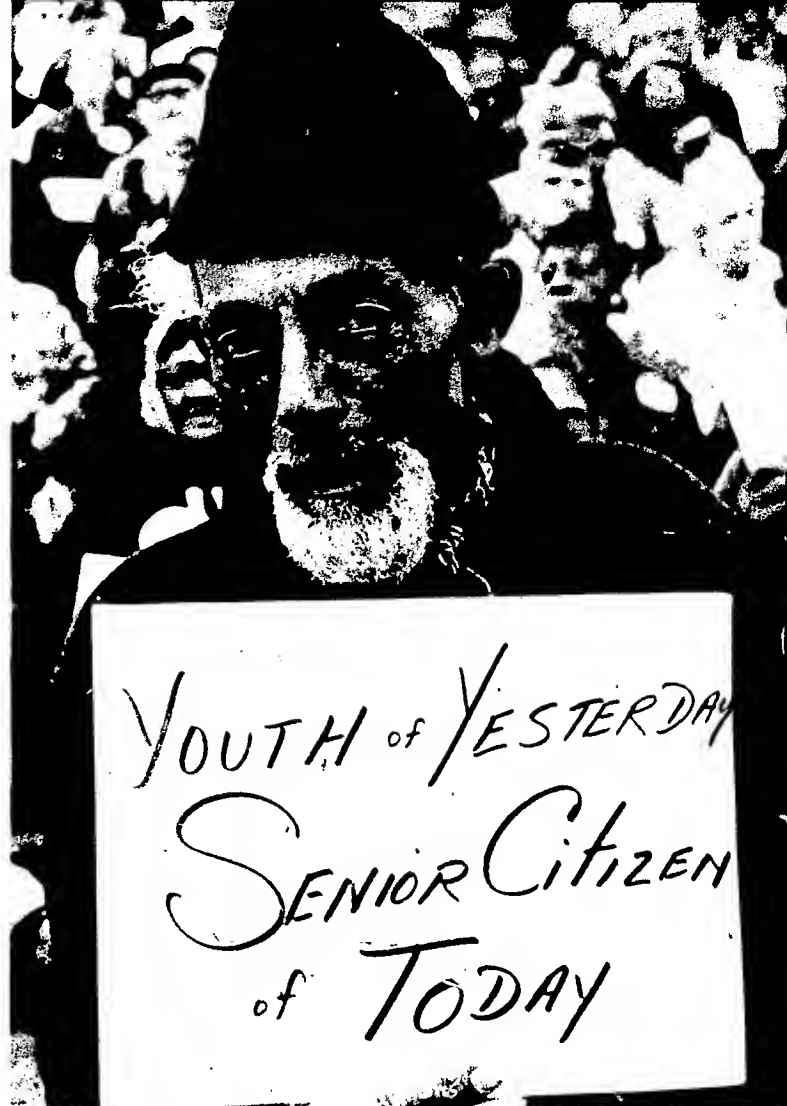 YOUTH of YESTERDAY
SENIOR CITIZEN
of TODAY